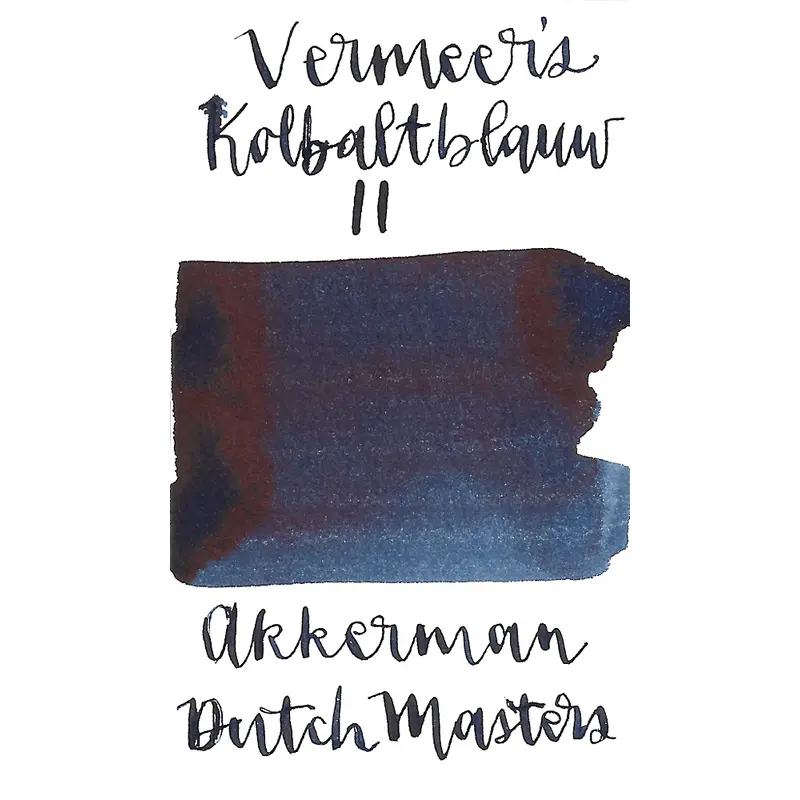 Vermeer's
Kolbaltblauw
11
Akkerman
Dutch Masters